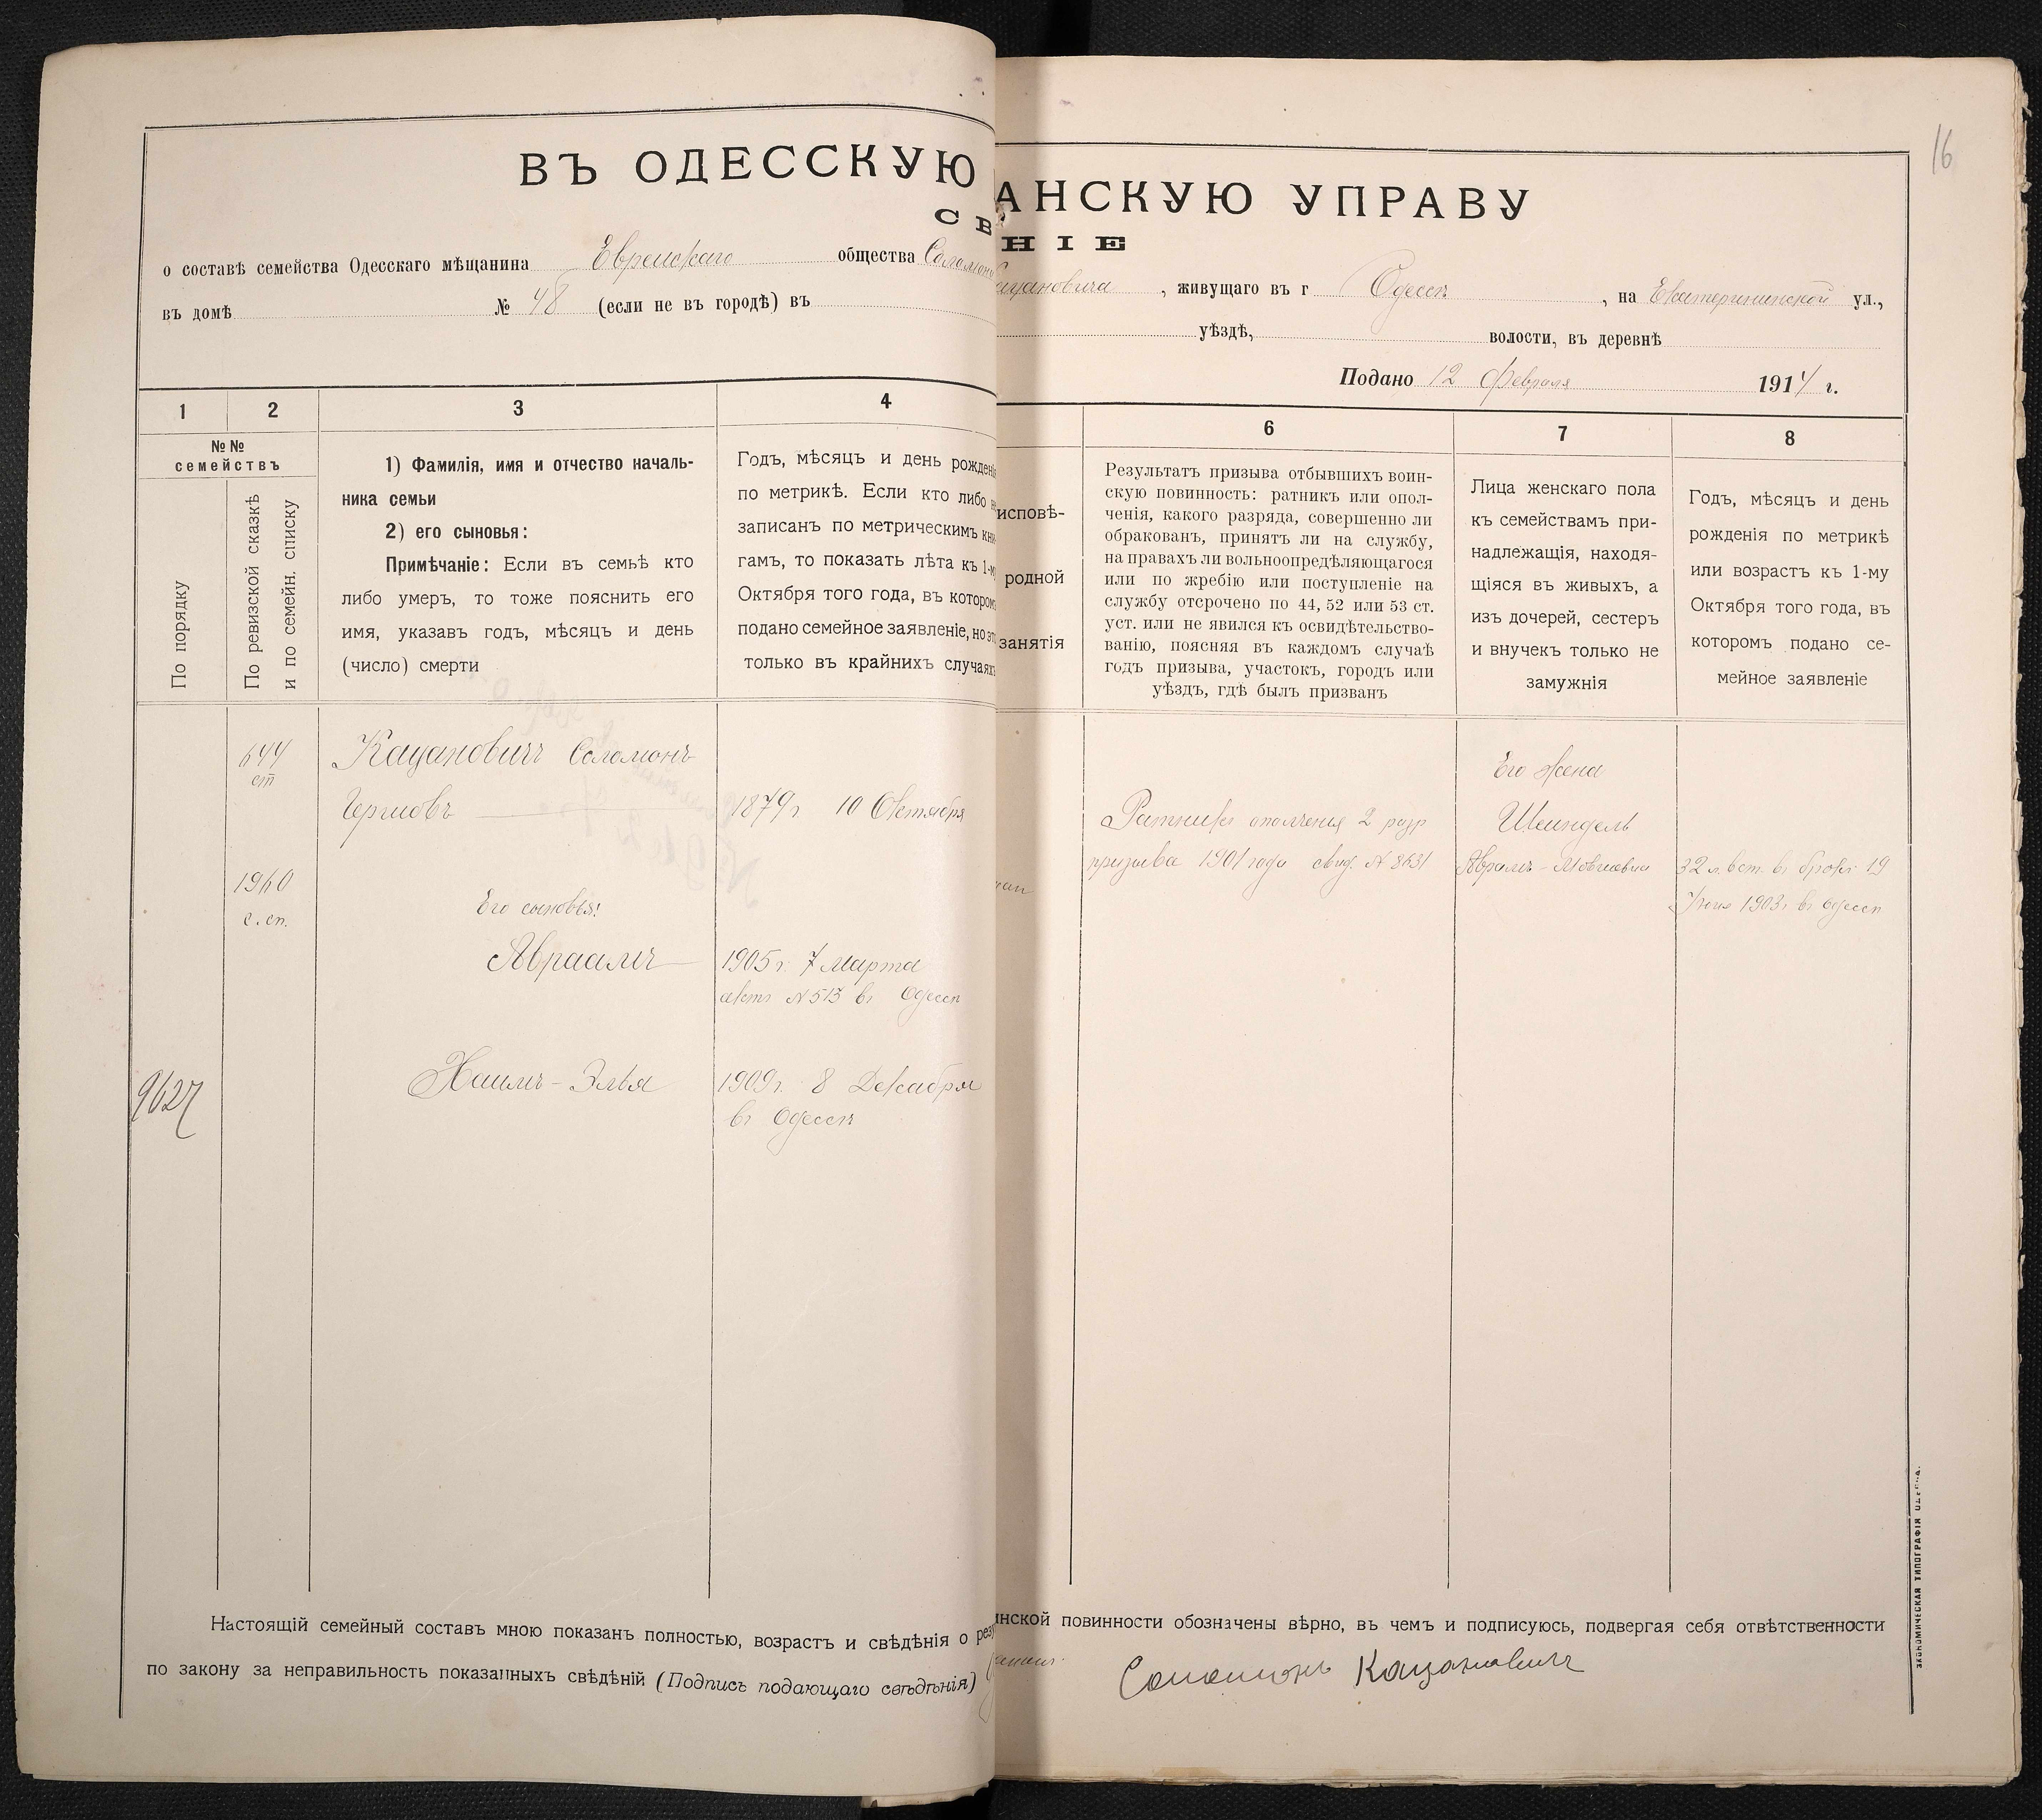 16
ВЪ ОДЕССКУЮ АНСКУЮ УПРАВУ
СВ НІЕ
о составѣ семейства Одесскаго мѣщанина Еврейскаго общества Соломона ацановича, живущаго въ г Одессѣ, на Екатерининской ул.,
въ домѣ № 48 (если не въ городѣ) въ уѣздѣ, волости, въ деревнѣ
Подано 12 Февраля 1914 г.
1 2 3 4 6 7 8
№№
семействъ
По порядку
По ревизской сказкѣ
и по семейн. списку
1) Фамилія, имя и отчество началь-
ника семьи
2) его сыновья:
Примѣчаніе: Если въ семьѣ кто
либо умеръ, то тоже пояснить его
имя, указавъ годъ, мѣсяцъ и день
(число) смерти
Годъ, мѣсяцъ и день рожденія
по метрикѣ. Если кто либо не
записанъ по метрическимъ кни-
гамъ, то показать лѣта къ 1-му
Октября того года, въ которомъ
подано семейное заявленіе, но это
только въ крайнихъ случаяхъ
исповѣ-
родной
занятія
Результатъ призыва отбывшихъ воин-
скую повинность: ратникъ или опол-
ченія, какого разряда, совершенно ли
обракованъ, принятъ ли на службу,
на правахъ ли вольноопредѣляющагося
или по жребію или поступленіе на
службу отсрочено по 44, 52 или 53 ст.
уст. или не явился къ освидѣтельство-
ванію, поясняя въ каждомъ случаѣ
годъ призыва, участокъ, городъ или
уѣздъ, гдѣ былъ призванъ
Лица женскаго пола
къ семействамъ при-
надлежащія, находя-
щіяся въ живыхъ, а
изъ дочерей, сестеръ
и внучекъ только не
замужнія
Годъ, мѣсяцъ и день
рожденія по метрикѣ
или возрастъ къ 1-му
Октября того года, въ
которомъ подано се-
мейное заявленіе
644
ст
Кацановичъ Соломонъ
Гершовъ
1879 г 10 Октября
Ратникъ ополченія 2 разр
призыва 1901 года свид. № 8631
Его жена
Шейндель
Абрамъ-Мовшовна
32 л. вст. въ бракъ 19
Іюня 1903 г въ Одессѣ
1960
с. сп.
Его сыновья:
Авраамъ
1905 г. 7 Марта
актъ № 513 въ Одессѣ
9627
Хаимъ-Элья
1909 г. 8 Декабря
въ Одессѣ
Настоящій семейный составъ мною показанъ полностью, возрастъ и свѣдѣнія о резу инской повинности обозначены вѣрно, въ чемъ и подписуюсь, подвергая себя отвѣтственности
по закону за неправильность показанныхъ свѣдѣній (Подпись подающаго свѣдѣнія) Соломонъ Кацановичъ
ЭКОНОМИЧЕСКАЯ ТИПОГРАФІЯ ОДЕССА.